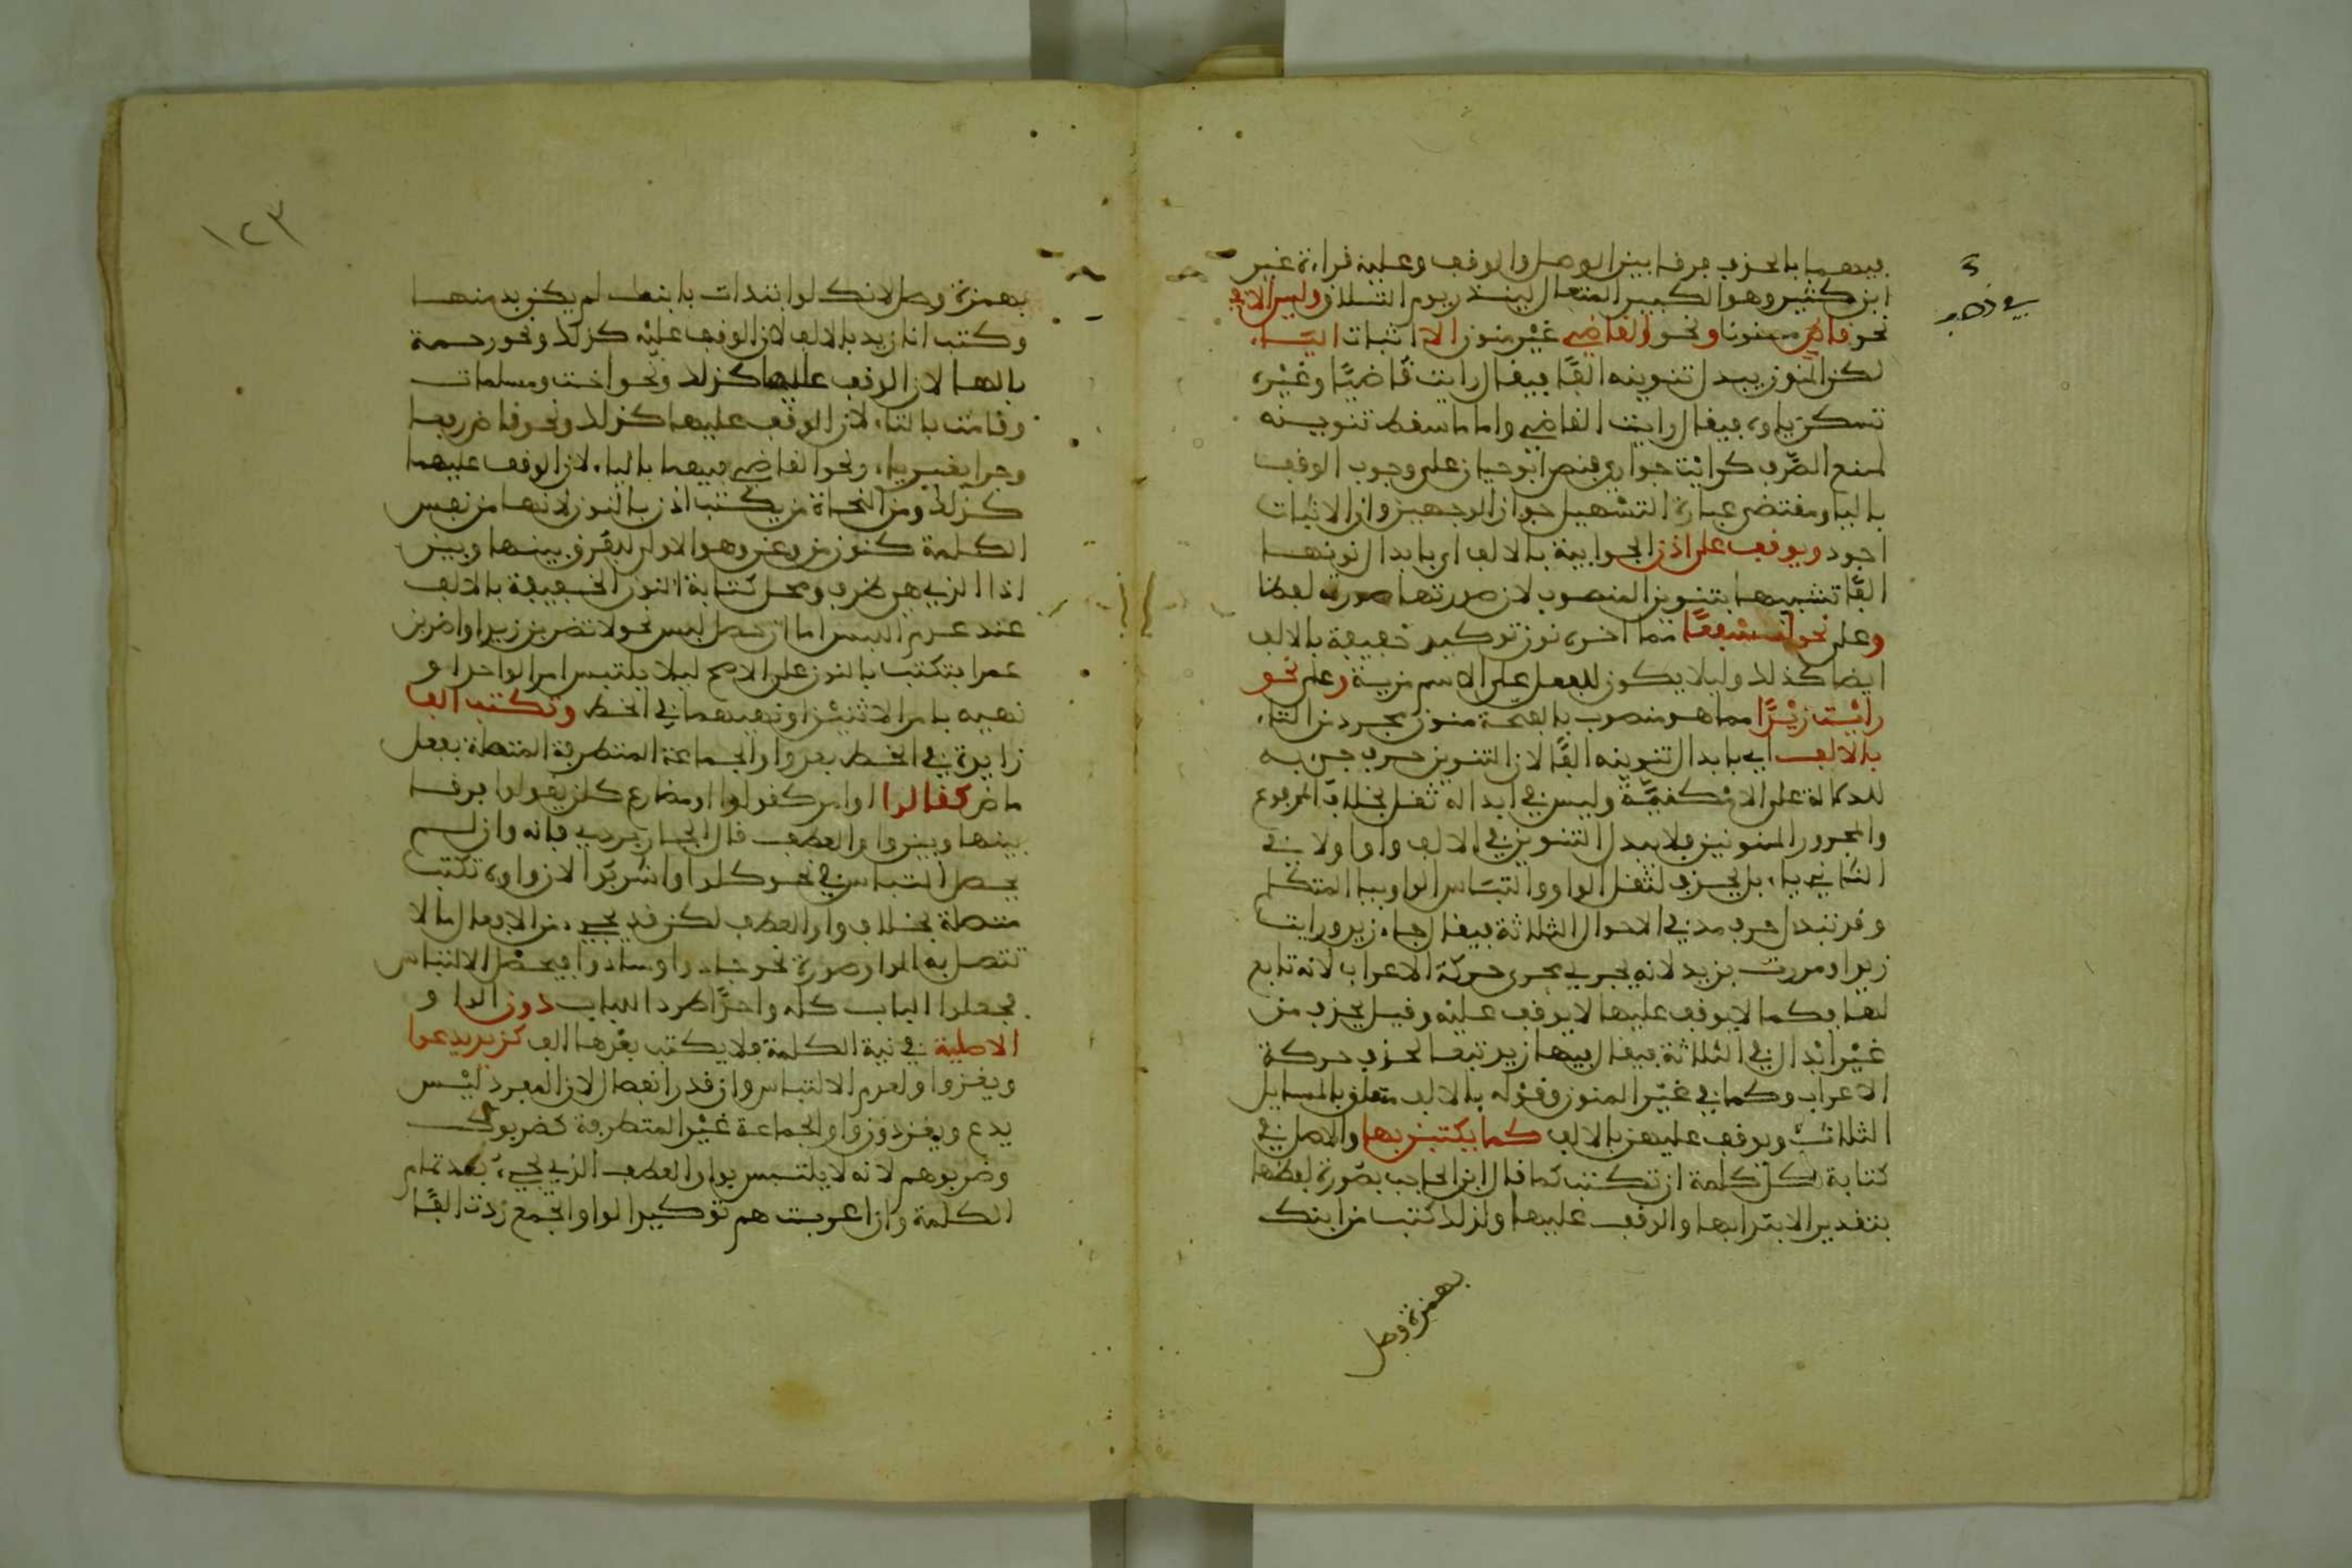 فيهما بالحذف فرقا بين الوصل والوقف وعليه قراءة غير
ابن كثير وهو الكبير المتعال لينذر يوم التلاق وليس لك في
نحو قاض منونا ونحو القاضي غير منون الا اثبات الياء
لكن المنون يبدل تنوينه الفًا فيقال رايت قاضيًا وغيره
تسكن ياوه فيقال رايت القاضي واما ما سقط تنوينه
لمنع الصرف كرايت جواري فنص ابو حيان على وجوب الوقف
بالياء ومقتضى عبارة التسهيل جواز الوجهين وان الاثبات
اجود ويوقف على اذن الجوابية بالالف اي بابدال نونها
الفًا تشبيها بتنوين المنصوب لان صورتها صورته لفظا
وعلى نحو لنسفعًا مما اخره نون توكيد خفيفة بالالف
ايضا كذلك وليلا يكون للفعل على الاسم مزية وعلى نحو
رايت زيدًا مما هو منصوب بالفتحة منون مجرد من التاء
بالالف اي بابدال تنوينه الفًا لان التنوين حرف جيء به
للدلالة على الامكنية وليس في ابداله ثقل بخلاف المرفوع
والمجرور المنونين فلا يبدل التنوين في الاول واوا ولا في
الثاني ياء بل يحذف لثقل الواو والتباس الياء بيا المتكلم
وقد تبدل حرف مد في الاحوال الثلاثة فيقال جاء زيدو ورايت
زيدا ومررت بزيدي لانه يجري مجرى حركة الاعراب لانه تابع
لها فكما لا يوقف عليها لا يوقف عليه وقيل يحذف من
غير ابدال في الثلاثة فيقال فيها زيد تبعا لحذف حركة
الاعراب وكما في غير المنون وقوله بالالف متعلق بالمسايل
الثلاث ويوقف عليهن بالالف كما يكتبن بها والاصل في
كتابة كل كلمة ان تكتب كما قال ابن الحاجب بصورة لفظها
بتقدير الابتدا بها والوقف عليها ولذلك كتب من ابنك
بهمزة وصل
١٢٣
بهمزة وصل لانك لو ابتدات بابنك لم يكن بد منها
وكتب انا زيد بالالف لان الوقف عليه كذلك ونحو رحمة
بالها لان الوقف عليها كذلك ونحو اخت ومسلمات
وقامت بالتاء لان الوقف عليها كذلك ونحو قاض رفعا
وجرا بغير ياء ونحو القاضي فيهما بالياء لان الوقف عليهما
كذلك ومن النحاة من يكتب اذن بالنون لانها من نفس
الكلمة كنون من وعن وهو الاولى ليفرق بينها وبين
اذا التي هي ظرف ومحل كتابة النون الخفيفة بالالف
عند عدم اللبس اما ان حصل لبس نحو لا تضربن زيدا واضربن
عمرا فتكتب بالنون على الاصح ليلا يلتبس امر الواحد او
نهيه بامر الاثنين او نهيهما في الخط وتكتب الف
زايدة في الخط بعد واو الجماعة المتطرفة المتصلة بفعل
ماض كقالوا او امر كقولوا او مضارع كلن يقولوا فرقا
بينها وبين واو العطف قال الجاربردي فانه وان لم
يحصل التباس في نحو كلوا واشربوا لان واوه تكتب
متصلة بخلاف واو العطف لكن قد يجيء من الافعال ما لا
تتصل به الواو صورة نحو جادوا وسادوا فيحصل الالتباس
فجعلوا الباب كله واحدًا طردا للباب دون الواو
الاصلية في نية الكلمة فلا يكتب بعدها الف كزيد يدعوا
ويغزوا ولعدم الالتباس وان قدر انفصال لان المفرد ليس
يدع ويغز دون واو الجماعة غير المتطرفة كضربوك
وضربوهم لانه لا يلتبس بواو العطف الذي يجيء بعد تمام
الكلمة وان اعربت هم توكيدا لواو الجمع زدت الفًا